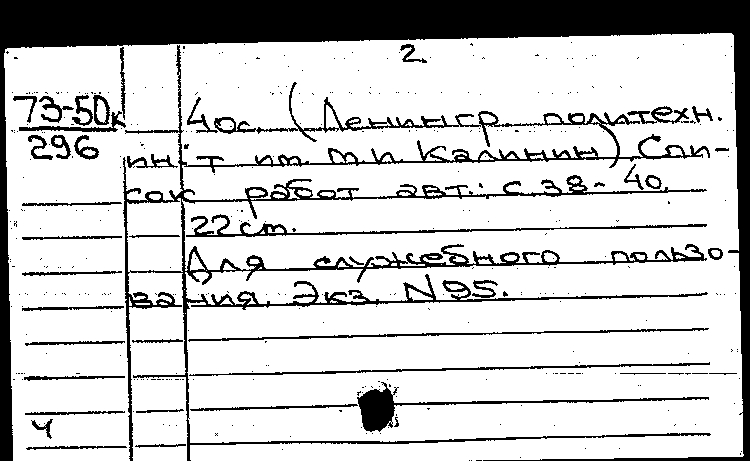 2.
73-50к
296
40с. (Ленингр. политехн.
ин-т им. М.И. Калинин). Спи-
сок работ авт.: с. 38-40.
22 ст.
Для служебного пользо-
вания. Экз. N95.
4